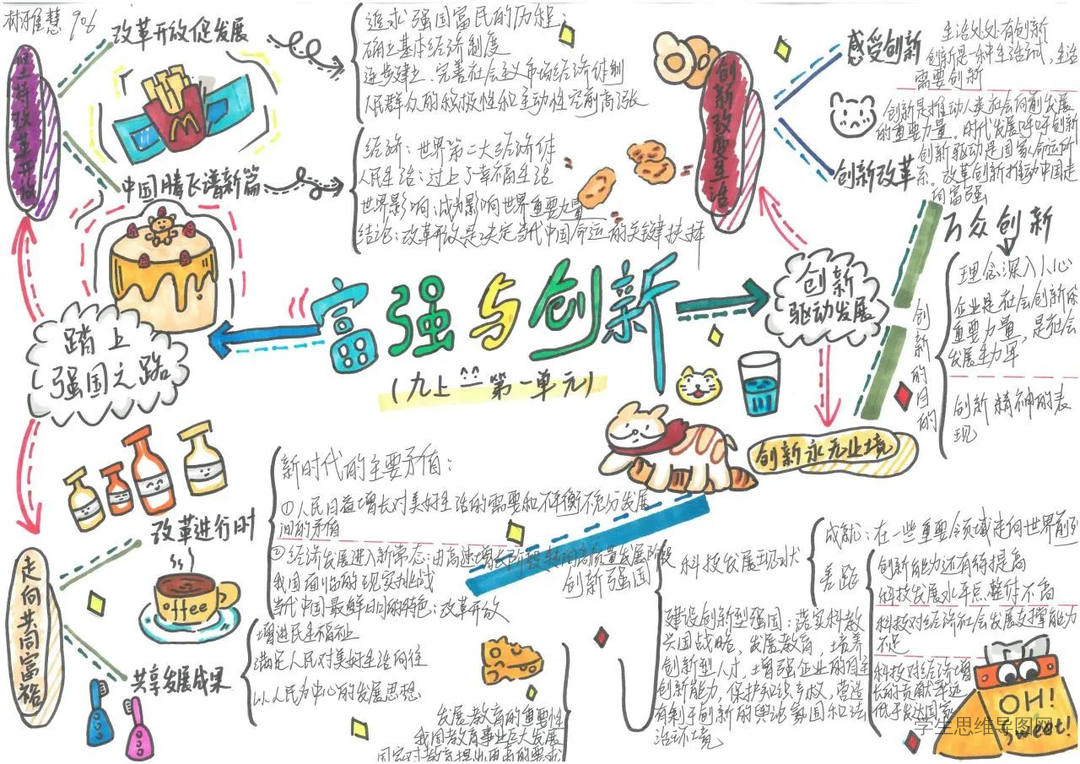 906
坚持改革开放
改革开放促发展
追求强国富民的历程:
确立基本经济制度
逐步建立、完善社会主义市场经济体制
人民群众的积极性和主动性空前高涨
中国腾飞谱新篇
经济:世界第二大经济体
人民生活:过上了幸福生活
世界影响:成为影响世界重要力量
结论:改革开放是决定当代中国命运的关键抉择
踏上
强国之路
富强与创新
(九上 第一单元)
创新
驱动发展
创新改变生活
感受创新
生活处处有创新
创新是一种生活方式,生活
需要创新
创新改革
创新是推动人类社会向前发展
的重要力量,时代发展呼唤创新
创新驱动是国家命运所
系。改革创新推动中国走
向富强
创新永无止境
万众创新
创新的目的
理念深入人心
企业是社会创新的
重要力量,是社会
发展主力军
创新精神的表
现
走向共同富裕
改革进行时
新时代的主要矛盾:
①人民日益增长对美好生活的需要和不平衡不充分发展
间的矛盾
②经济发展进入新常态:由高速增长阶段转向高质量发展阶段
我国面临的现实挑战
当代中国最鲜明的特色:改革开放
共享发展成果
增进民生福祉
满足人民对美好生活向往
以人民为中心的发展思想
offee
创新强国
科技发展现状
成就:在一些重要领域走向世界前列
差距
创新能力还有待提高
科技发展水平总体不高
科技对经济社会发展支撑能力
不足
科技对经济增
长的贡献率远
低于发达国家
建设创新型强国:落实科教
兴国战略,发展教育,培养
创新型人才,增强企业的自主
创新能力,保护知识产权,营造
有利于创新的舆论氛围和法
治环境
发展教育的重要性
我国教育事业巨大发展
国家对教育提出更高的要求
OH!
Sweet!
学生思维导图网